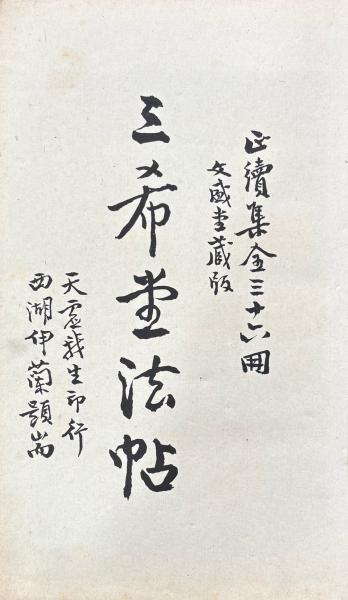 正續集全三十六冊
文盛堂藏版
三希堂法帖
天虛我生印行
西湖伊蘭題耑